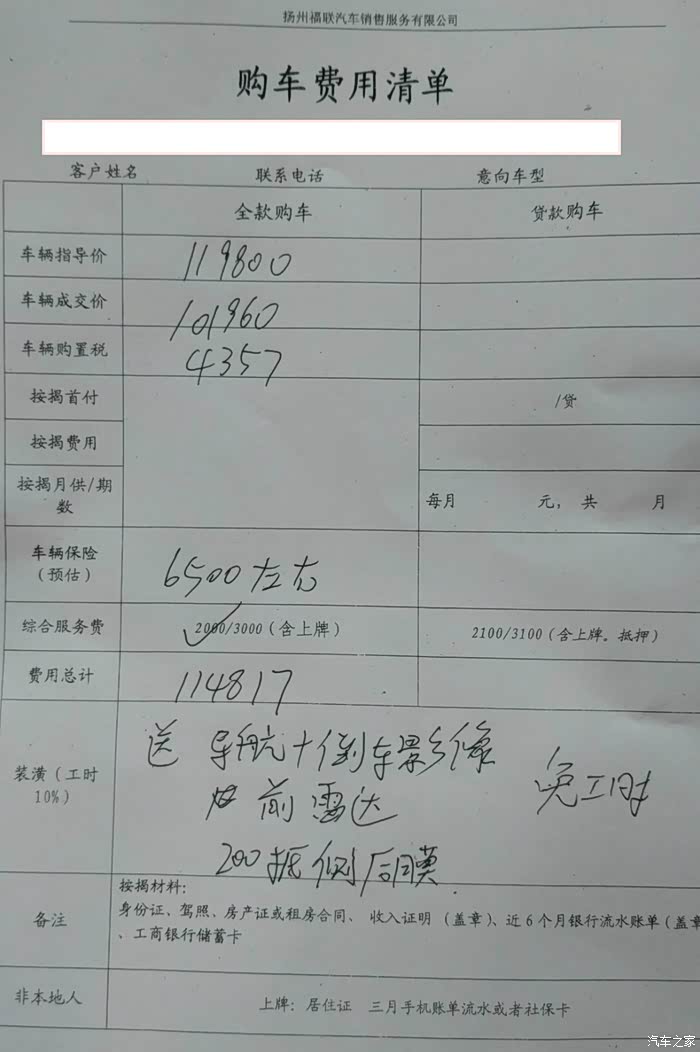 扬州福联汽车销售服务有限公司
购车费用清单
客户姓名 联系电话 意向车型
全款购车 贷款购车
车辆指导价 119800
车辆成交价 101960
车辆购置税 4357
按揭首付 /贷
按揭费用
按揭月供/期数 每月 元，共 月
车辆保险（预估） 6500左右
综合服务费 2000/3000（含上牌） 2100/3100（含上牌。抵押）
费用总计 114817
装潢（工时10%） 送 导航+倒车影像 免工时
前雷达
200抵侧后膜
备注 按揭材料：
身份证、驾照、房产证或租房合同、 收入证明 （盖章）、近6个月银行流水账单（盖章
、工商银行储蓄卡
非本地人 上牌：居住证 三月手机账单流水或者社保卡
汽车之家